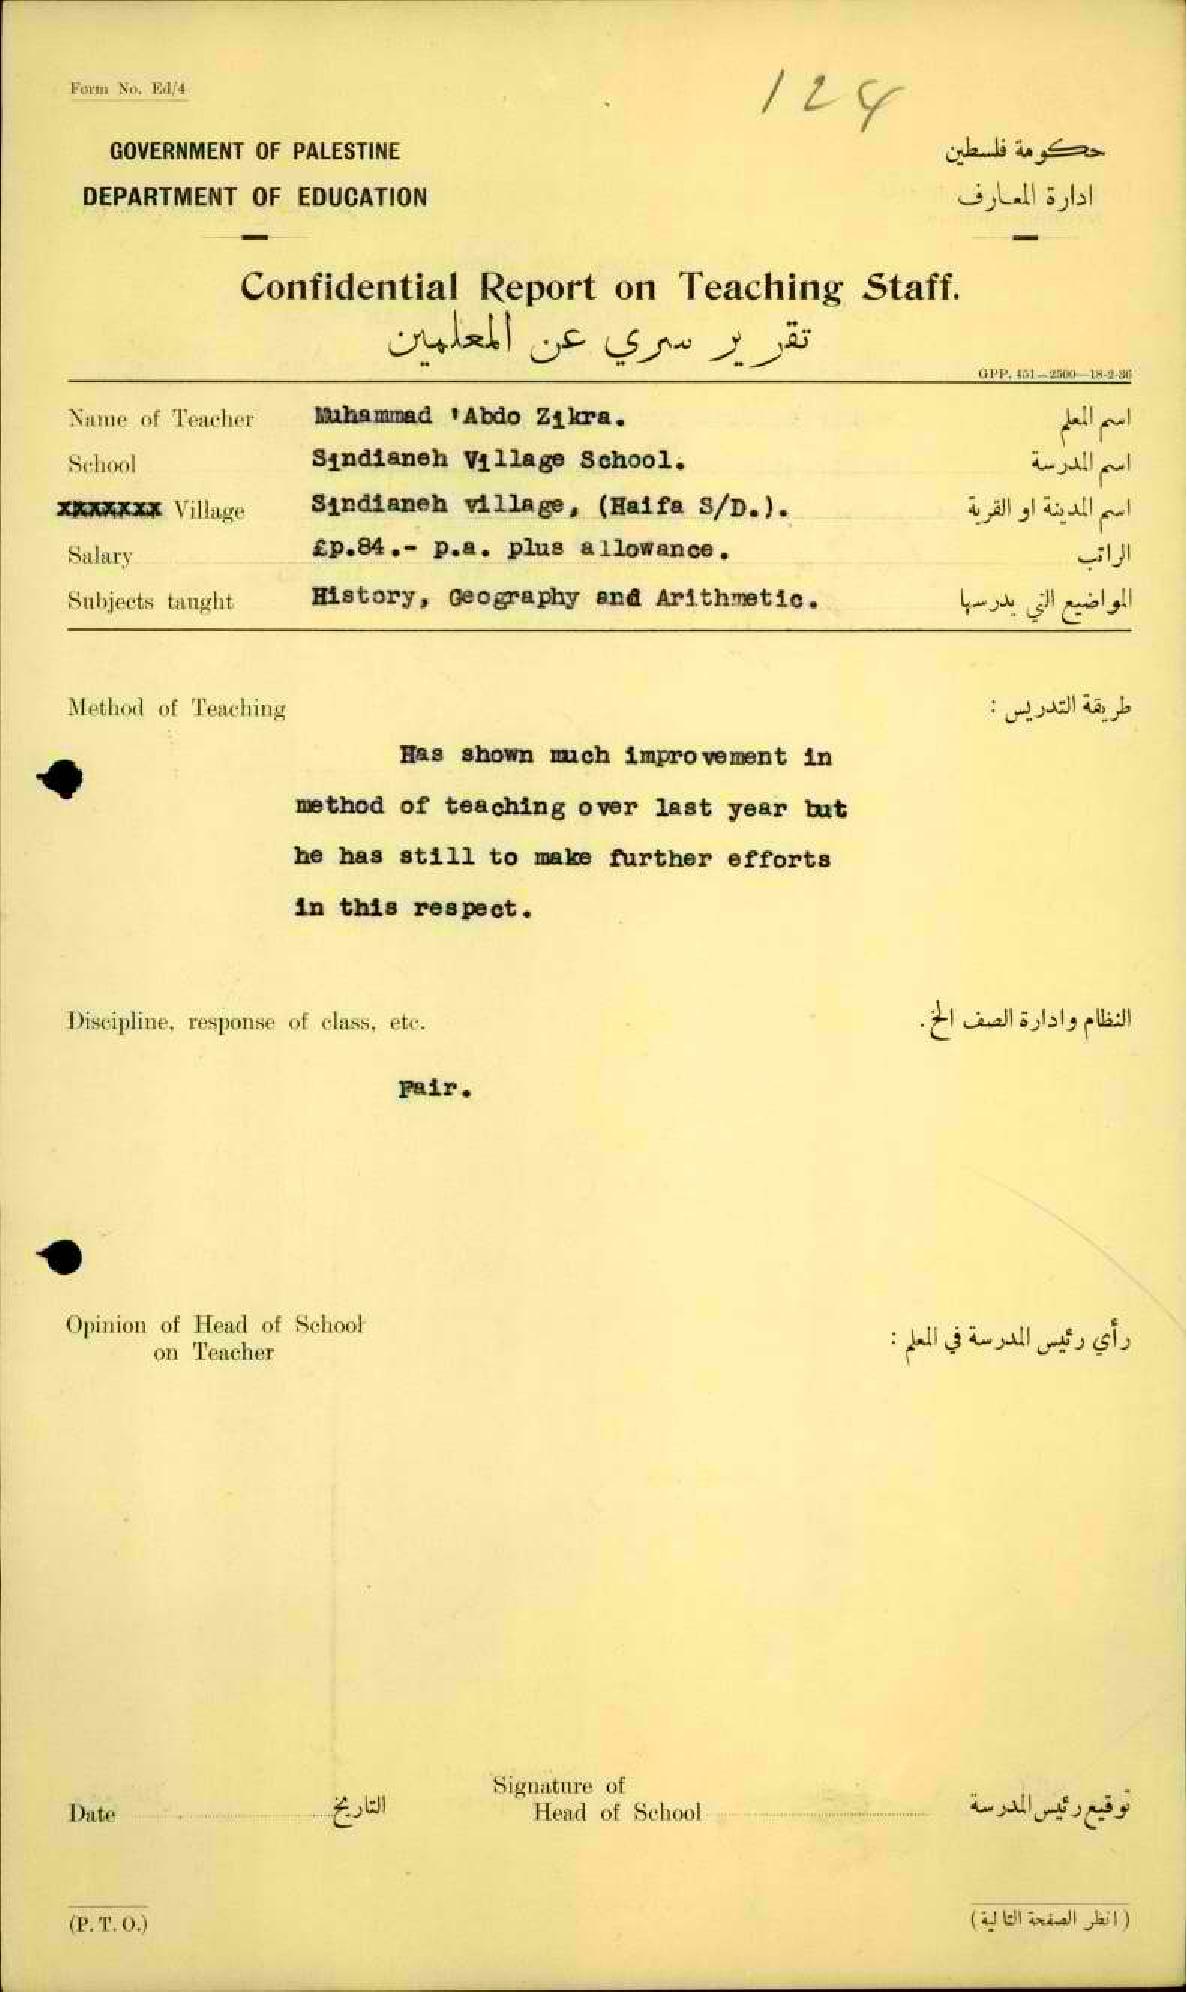 Form No. Ed/4
124
GOVERNMENT OF PALESTINE
حكومة فلسطين
DEPARTMENT OF EDUCATION
ادارة المعارف
Confidential Report on Teaching Staff.
تقرير سري عن المعلمين
GPP. 451—2500—18-2-36
Name of Teacher Muhammad 'Abdo Zikra. اسم المعلم
School Sindianeh Village School. اسم المدرسة
xxxxxxx Village Sindianeh village, (Haifa S/D.). اسم المدينة او القرية
Salary £p.84.- p.a. plus allowance. الراتب
Subjects taught History, Geography and Arithmetic. المواضيع التي يدرسها
Method of Teaching طريقة التدريس :
Has shown much improvement in
method of teaching over last year but
he has still to make further efforts
in this respect.
Discipline, response of class, etc. النظام وادارة الصف الخ.
Fair.
Opinion of Head of School
on Teacher
رأي رئيس المدرسة في المعلم :
Signature of
Date التاريخ Head of School توقيع رئيس المدرسة
(P. T. O.) (انظر الصفحة التالية)